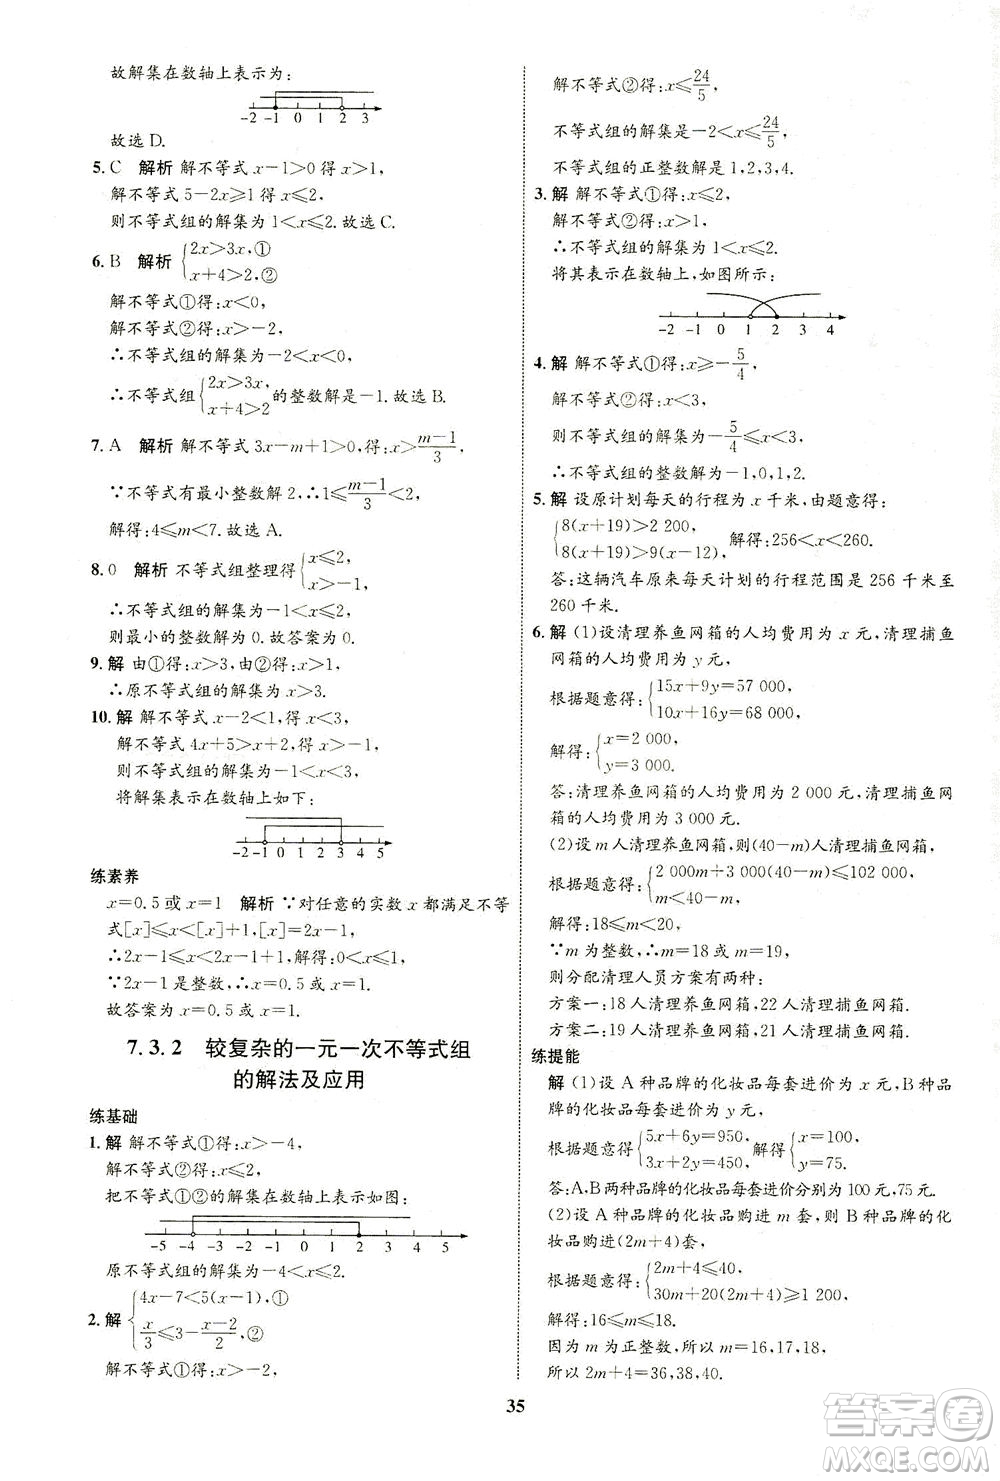 故解集在数轴上表示为:
-2 -1 0 1 2 3
故选 D.
5. C 解析 解不等式 x-1>0 得 x>1,
解不等式 5-2x⩾1 得 x⩽2,
则不等式组的解集为 1<x⩽2. 故选 C.
6. B 解析 {2x>3x,①
x+4>2,②
解不等式①得:x<0,
解不等式②得:x>-2,
∴不等式组的解集为-2<x<0,
∴不等式组{2x>3x, x+4>2 的整数解是-1. 故选 B.
7. A 解析 解不等式 3x-m+1>0,得:x>(m-1)/3,
∵不等式有最小整数解 2,∴1⩽(m-1)/3<2,
解得:4⩽m<7. 故选 A.
8. 0 解析 不等式组整理得{x⩽2, x>-1,
∴不等式组的解集为-1<x⩽2,
则最小的整数解为 0. 故答案为 0.
9. 解 由①得:x>3,由②得:x⩾1,
∴原不等式组的解集为 x>3.
10. 解 解不等式 x-2<1,得:x<3,
解不等式 4x+5>x+2,得:x>-1,
则不等式组的解集为-1<x<3,
将解集表示在数轴上如下:
-2 -1 0 1 2 3 4 5
练素养
x=0.5 或 x=1 解析 ∵对任意的实数 x 都满足不等
式[x]⩽x<[x]+1,[x]=2x-1,
∴2x-1⩽x<2x-1+1,解得:0<x⩽1.
∵2x-1 是整数,∴x=0.5 或 x=1.
故答案为 x=0.5 或 x=1.
7.3.2 较复杂的一元一次不等式组
的解法及应用
练基础
1. 解 解不等式①得:x>-4,
解不等式②得:x⩽2,
把不等式①②的解集在数轴上表示如图:
-5 -4 -3 -2 -1 0 1 2 3 4
原不等式组的解集为-4<x⩽2.
2. 解 {4x-7<5(x-1),①
x/3⩽3-(x-2)/2,②
解不等式①得:x>-2,
解不等式②得:x⩽24/5,
不等式组的解集是-2<x⩽24/5,
不等式组的正整数解是 1,2,3,4.
3. 解 解不等式①得:x>1,
解不等式②得:x<2,
∴不等式组的解集为 1<x<2.
将其表示在数轴上,如图所示:
-2 -1 0 1 2 3 4
4. 解 解不等式①得:x⩾-5/4,
解不等式②得:x<3,
不等式组的解集为-5/4⩽x<3,
∴不等式组的整数解为-1,0,1,2.
5. 解 设原计划每天的行程为 x 千米,由题意得:
{8(x+19)>2 200,
8(x+19)>9(x-12), 解得:256<x<260.
答:这辆汽车原来每天计划的行程范围是 256 千米至
260 千米.
6. 解 (1)设清理养鱼网箱的人均费用为 x 元,清理捕鱼
网箱的人均费用为 y 元,
根据题意得:{15x+9y=57 000,
10x+16y=68 000,
解得:{x=2 000,
y=3 000.
答:清理养鱼网箱的人均费用为 2 000 元,清理捕鱼网
箱的人均费用为 3 000 元.
(2)设 m 人清理养鱼网箱,则(40-m)人清理捕鱼网箱,
根据题意得:{2 000m+3 000(40-m)⩽102 000,
m<40-m,
解得:18⩽m<20,
∵m 为整数,∴m=18 或 m=19,
则分配清理人员方案有两种:
方案一:18 人清理养鱼网箱,22 人清理捕鱼网箱.
方案二:19 人清理养鱼网箱,21 人清理捕鱼网箱.
练提能
解 (1)设 A 种品牌的化妆品每套进价为 x 元,B 种品
牌的化妆品每套进价为 y 元.
根据题意得:{5x+6y=950,
3x+2y=450, 解得{x=100,
y=75.
答:A,B 两种品牌的化妆品每套进价分别为 100 元,75 元.
(2)设 A 种品牌的化妆品购进 m 套,则 B 种品牌的化
妆品购进(2m+4)套.
根据题意得:{2m+4⩽40,
30m+20(2m+4)⩾1 200,
解得:16⩽m⩽18.
因为 m 为正整数,所以 m=16,17,18,
所以 2m+4=36,38,40.
35
答案圈
MXQE.COM